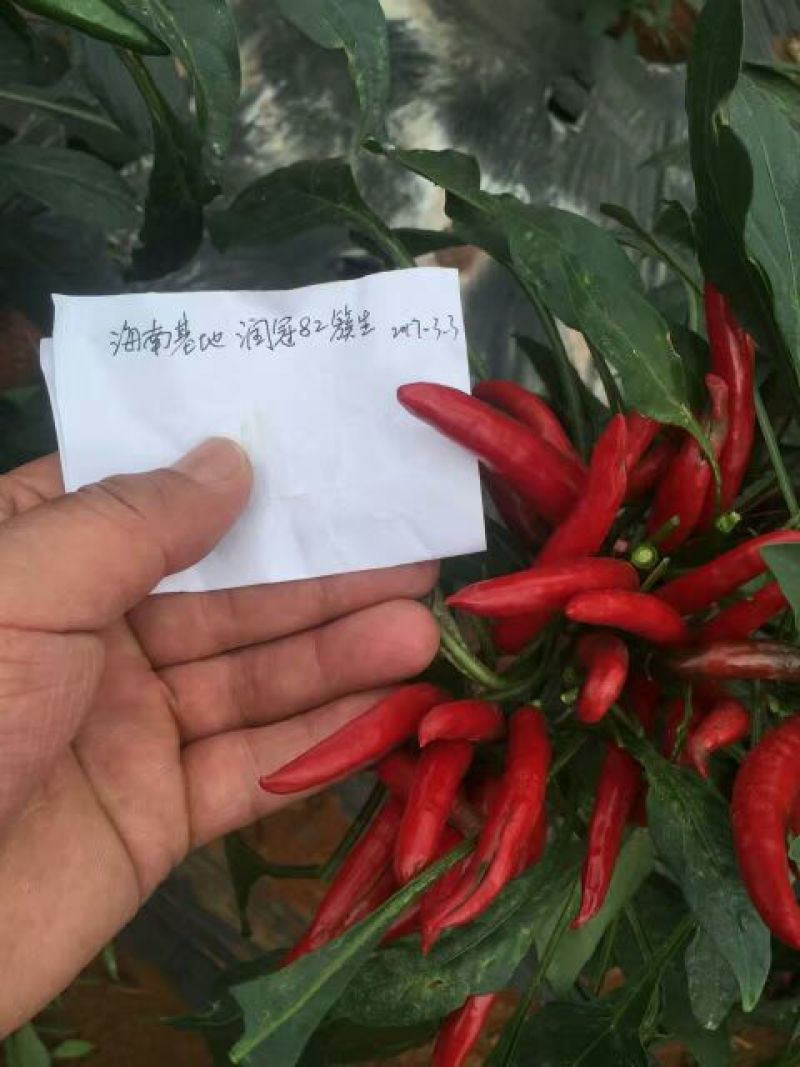 海南基地 润冠82簇生 2017-3.3